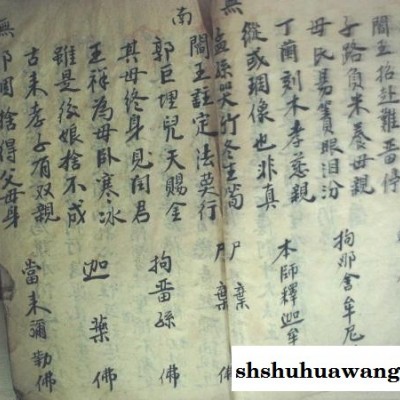 閻王招赴難晋停
子路負米養母親 拘那舍牟尼
毋氏易簀眼泪汾
丁蘭刻木孝慈親 本師釋迦牟
縱或調像也非真
無
孟孫哭竹冬生筍 尸棄佛
閻王註定法莫行 尸棄佛
南
郭巨埋兒天賜金 拘晋孫佛
其母終身見閻君
王祥為母臥寒冰 迦藥佛
雖是後娘捨不成
古来孝子有双親 當来彌勒佛
無
那個捨得父母身
shshuhuawang